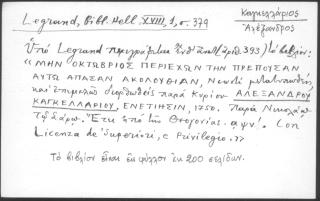 Legrand, Bibl. Hell. XVIII, 1, σ. 379
Καγκελλάριος
Ἀλέξανδρος
Ὑπὸ Legrand περιγράφεται (ἀριθ. 393) τὸ βιβλίον:
"ΜΗΝ ΟΚΤΩΒΡΙΟΣ ΠΕΡΙΕΧΩΝ ΤΗΝ ΠΡΕΠΟΥΣΑΝ
ΑΥΤΩ ΑΠΑΣΑΝ ΑΚΟΛΟΥΘΙΑΝ, Νεωστὶ μετατυπωθεὶς
καὶ ἐπιμελῶς διορθωθεὶς παρὰ Κυρίου ΑΛΕΞΑΝΔΡΟΥ
ΚΑΓΚΕΛΛΑΡΙΟΥ, ΕΝΕΤΙΗΣΙΝ, 1750. Παρὰ Νικολάῳ
τῷ Σάρῳ. Ἔτει ἀπὸ τῆς Θεογονίας. αψν'. Con
Licenza de' Superiori, e Privilegio.»
Τὸ βιβλίον εἶναι εἰς φύλλον ἐκ 200 σελίδων.